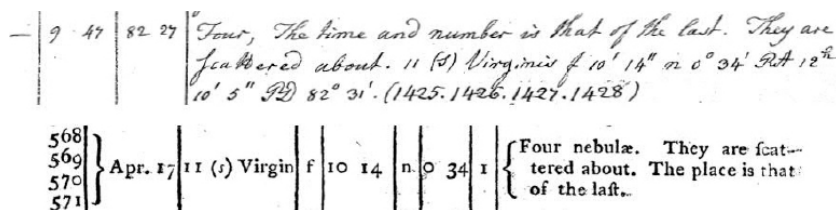 — 9 47 82 27 Four, The time and number is that of the last. They are
scattered about. 11 (s) Virginis f 10' 14" n 0° 34' RA 12h
10' 5" PD 82° 31'. (1425.1426.1427.1428)
568
569
570
571
Apr. 17 11 (s) Virgin f 10 14 n 0 34 1
Four nebulæ. They are scat-
tered about. The place is that
of the last.